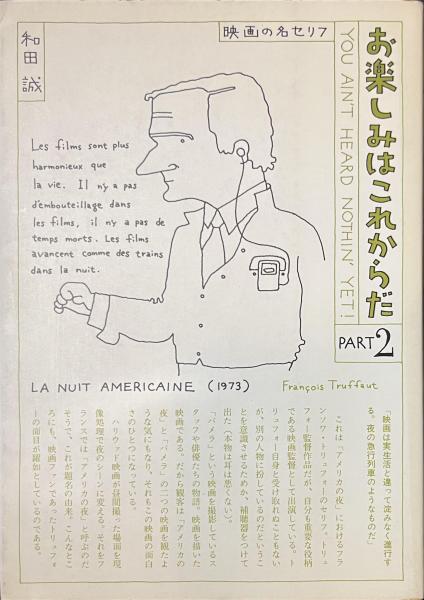 映画の名セリフ
お楽しみはこれからだ
YOU AIN'T HEARD NOTHIN' YET!
PART2
和田 誠
Les films sont plus
harmonieux que
la vie. Il n'y a pas
d'embouteillage dans
les films, il n'y a pas de
temps morts. Les films
avancent comme des trains
dans la nuit.
LA NUIT AMERICAINE (1973)
François Truffaut
「映画は実生活と違って淀みなく進行す
る。夜の急行列車のようなものだ」
これは「アメリカの夜」におけるフラ
ンソワ・トリュフォーのセリフ。トリュ
フォー監督作品だが、自分も重要な役柄
である映画監督として出演している。ト
リュフォー自身と受け取れぬこともない
が、別の人物に扮しているのだというこ
とを意識させるためか、補聴器をつけて
出た（本物は耳は悪くない）。
「パメラ」という映画を撮影しているス
タッフや俳優たちの物語。映画を描いた
映画である。だから観客は「アメリカの
夜」と「パメラ」の二つの映画を観たよ
うな気にもなり、それもこの映画の面白
さのひとつになっている。
ハリウッド映画が昼間撮った場面を現
像処理で夜のシーンに変える。それをフ
ランスでは「アメリカの夜」と呼ぶのだ
そうで、これが題名の由来。こんなとこ
ろにも、映画ファンであったトリュフォ
ーの面目が躍如としているのである。